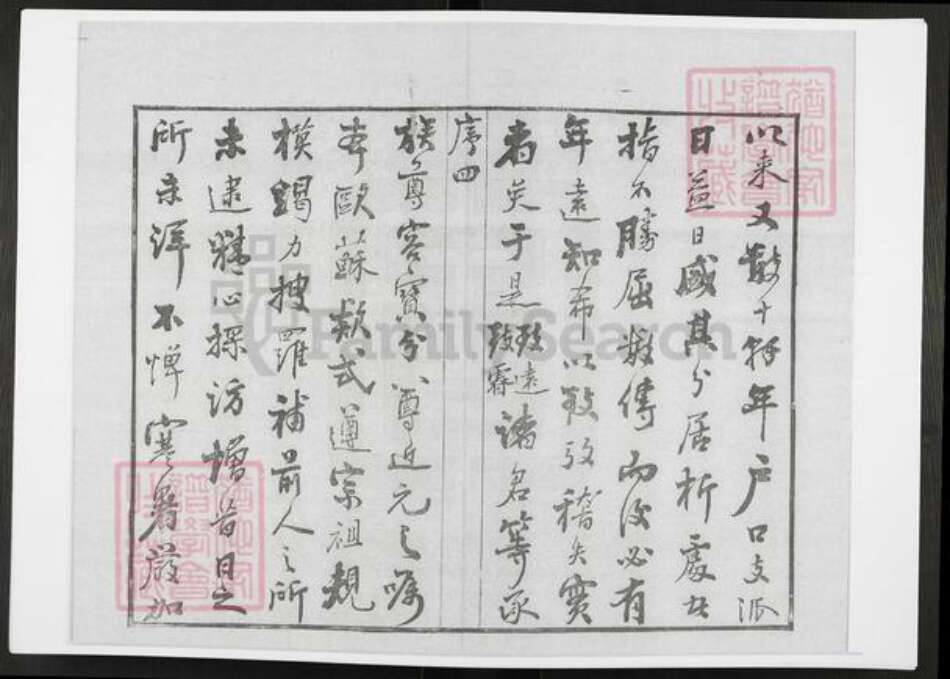 以来又數十年年户口支派
日益日盛其分居析處者
指不勝屈数傳而後必有
年遠知希以致攷稽失實
者矣于是致致遠霖諸名等承
序四
族尊容寳分尊近元之嘱
奉歐蘇欵式遵宗祖規
模竭力搜羅補前人之所
未逮精心探訪增昔日之
所未詳不憚寒暑嚴加
FamilySearch